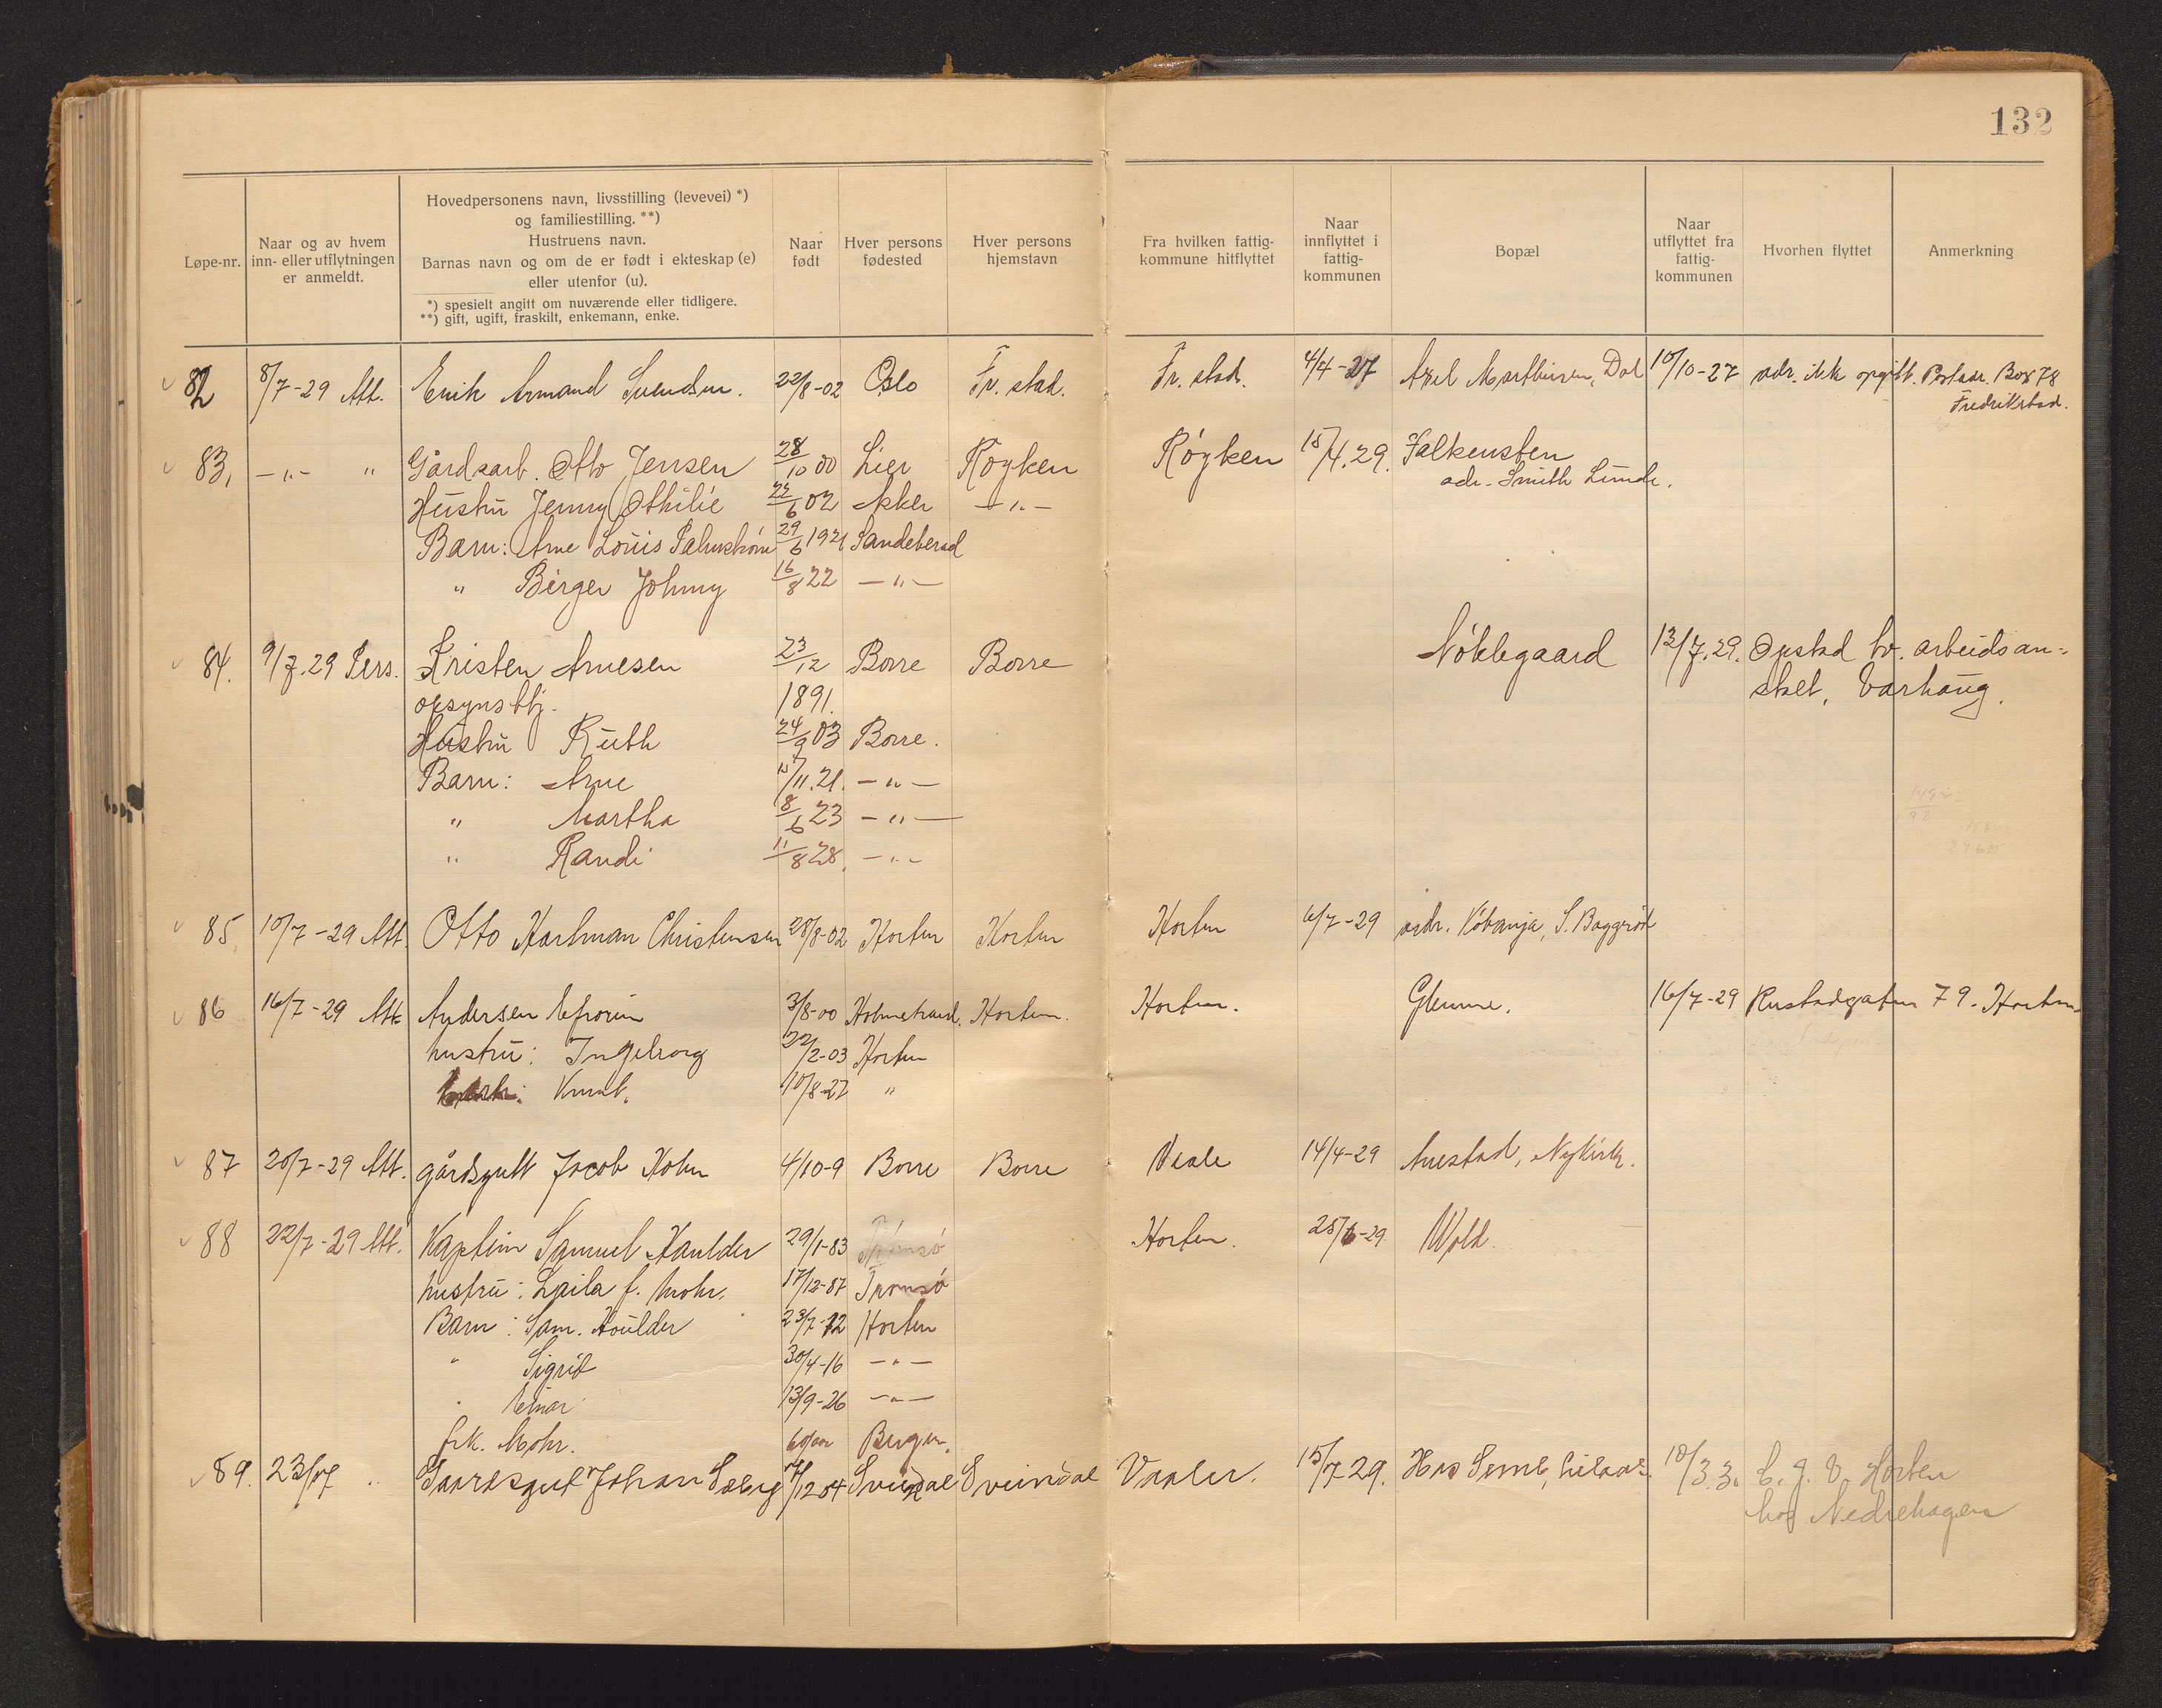 132
Løpe-nr.
Naar og av hvem
inn- eller utflytningen
er anmeldt.
Hovedpersonens navn, livsstilling (levevei) *)
og familiestilling. **)
Hustruens navn.
Barnas navn og om de er født i ekteskap (e)
eller utenfor (u).
*) spesielt angitt om nuværende eller tidligere.
**) gift, ugift, fraskilt, enkemann, enke.
Naar
født
Hver persons
fødested
Hver persons
hjemstavn
Fra hvilken fattig-
kommune hitflyttet
Naar
innflyttet i
fattig-
kommunen
Bopæl
Naar
utflyttet fra
fattig-
kommunen
Hvorhen flyttet
Anmerkning
82 8/7-29 Att. Erik Armand Svendsen. 22/8-02 Oslo Fr. stad. Fr. stad. 4/4-27 Axel Marthinsen, Dal 10/10-27 adr. ikke opgitt. Postadr. Box 78
Fredrikstad.
83, -"- " Gårdsarb. Otto Jensen 28/10 00 Lier Røyken Røyken 15/4.29. Falkensten
adr. Smith Lunde.
Hustru Jenny Othilie 22/6 02 Aker -"-
Barn: Arne Louis 29/6 1921 Sandeherad
" Birger Johnny 16/8 22 -"-
84. 9/7.29 Pers. Kristen Arnesen 23/12 Borre Borre Nøklegaard 13/7.29. Opstad tv. arbeidsan-
opsynsbtj. 1891. stalt, Varhaug.
Hustru Ruth 24/9 03 Borre.
Barn: Arne 15/11.21. -"-
" Martha 8/6 23 -"-
" Randi 11/8 28. -"-
85 10/7-29 Att. Otto Hartman Christensen 28/8-02 Horten Horten Horten 6/7-29 adr. S. Baggerød
86 16/7-29 Att. Andersen Efroim 3/8-00 Holmestrand. Horten. Horten. Glenne. 16/7-29 Rustadgaten 79. Horten
hustru: Ingeborg 22/2-03 Horten
Knut. 10/8-27 "
87 20/7-29 Att. gårdsgutt Jacob Holm 4/10-9 Borre Borre Vaale 14/4-29 Auestad, Nykirke.
88 22/7-29 Att. Kaptein Samuel Haulder 29/1-83 Tromsø Horten. 25/6-29 Wold.
hustru: Laila f. Mohr. 17/12-87 Tromsø
Barn: Sam. Houlder 23/7-12 Horten
" Sigrid 30/4-16 -"-
" Einar 13/9-26 -"-
frk. Mohr. 60 aar Bergen.
89. 23/7 Gaardsgut Johan 7/12 04 Svindal Svindal Vaaler. 15/7 29. Hos Semb, 10/3.30 C. J. V. Horten
hos Nedrehagen